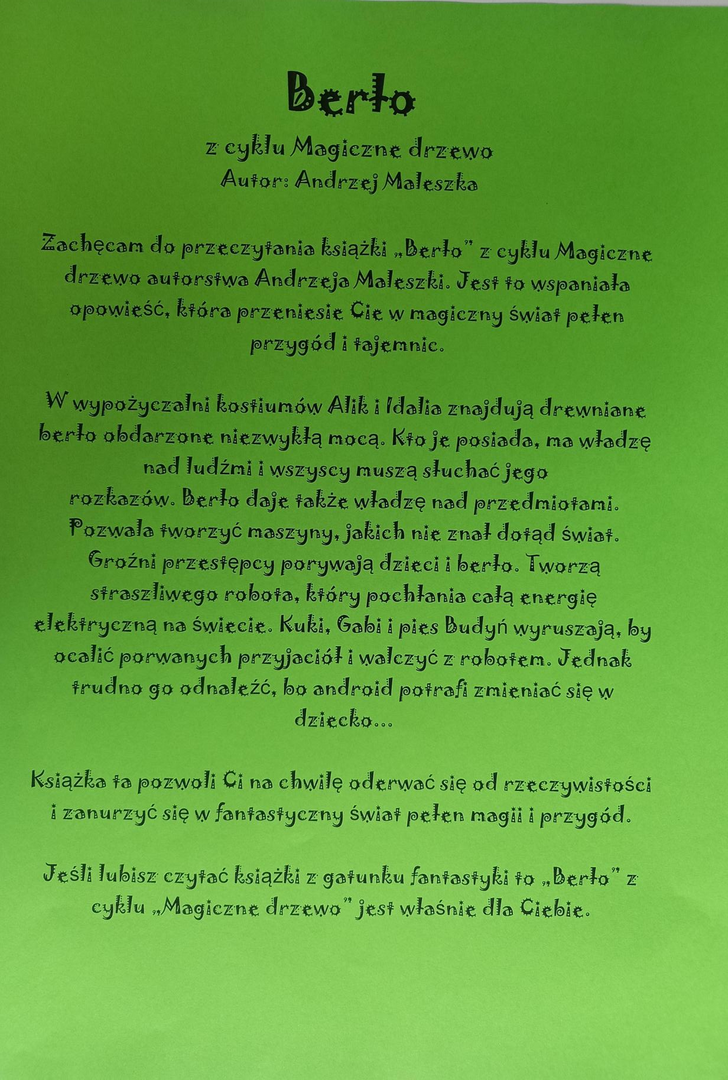 Berło
z cyklu Magiczne drzewo
Autor: Andrzej Maleszka
Zachęcam do przeczytania książki „Berło” z cyklu Magiczne
drzewo autorstwa Andrzeja Maleszki. Jest to wspaniała
opowieść, która przeniesie Cie w magiczny świat pełen
przygód i tajemnic.
W wypożyczalni kostiumów Alik i Idalia znajdują drewniane
berło obdarzone niezwykłą mocą. Kto je posiada, ma władzę
nad ludźmi i wszyscy muszą słuchać jego
rozkazów. Berło daje także władzę nad przedmiotami.
Pozwala tworzyć maszyny, jakich nie znał dotąd świat.
Groźni przestępcy porywają dzieci i berło. Tworzą
straszliwego robota, który pochłania całą energię
elektryczną na świecie. Kuki, Gabi i pies Budyń wyruszają, by
ocalić porwanych przyjaciół i walczyć z robotem. Jednak
trudno go odnaleźć, bo android potrafi zmieniać się w
dziecko...
Książka ta pozwoli Ci na chwilę oderwać się od rzeczywistości
i zanurzyć się w fantastyczny świat pełen magii i przygód.
Jeśli lubisz czytać książki z gatunku fantastyki to „Berło” z
cyklu „Magiczne drzewo” jest właśnie dla Ciebie.